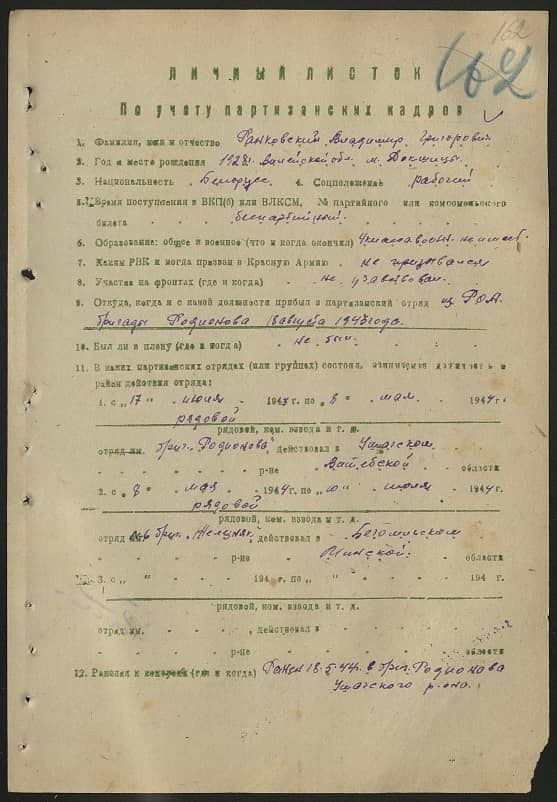 162
162
ЛИЧНЫЙ ЛИСТОК
По учету партизанских кадров
1. Фамилия, имя и отчество Ранковский Владимир Григорович
2. Год и место рождения 1928г. Вилейской обл. м. Докшицы
3. Национальность . Белорусс. 4. Соцположение рабочий
5. Время поступления в ВКП(б) или ВЛКСМ, № партайного или комсомольского
билета беспартийный.
6. Образование: общее и военное (что и когда окончил)
7. Каким РВК и когда призван в Красную Армию . не призывался
8. Участия на фронтах (где и когда) . не участвовал.
9. Откуда, когда и с какой должности прибыл в партизанский отряд из РОА.
бригады Родионова 18 августа 1943 года.
10. Был ли в плену (где и когда) не был.
11. В каких партизанских отрядах (или группах) состоял, занимаемая должность и
район действия отряда:
1. с „ 17 " июля 1943 г. по „ 8 " мая 1944 г.
рядовой
рядовой, ком. взвода и т. д.
отряд им. бриг. „Родионова", действовал в Ушатском
р-не Витебской области
2. с „ 8 " мая 1944 г. по „ 10 " июля 1944 г.
рядовой
рядовой, ком. взвода и т. д.
отряд №6 бриг. „Железняк", действовал в Бегомльском
р-не Минской. области
3. с „ " 194 г. по „ " 194 г.
рядовой, ком. взвода и т. д.
отряд им. , действовал в
р-не области
12. Ранения и контузии (где и когда) Ранен 18.5.44г. в бриг. Родионова
Ушатского р-она.